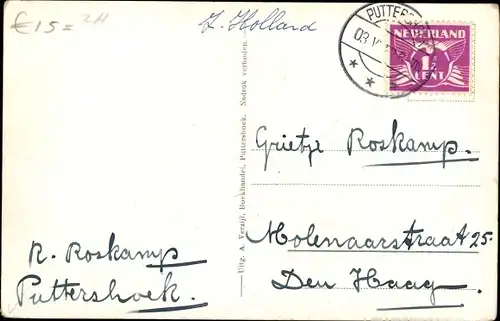 €15= ZH
Z. Holland
PUTTERSHOEK
NEDERLAND
1½
CENT
Grietje Roskamp.
Molenaarstraat 25.
Den Haag.
R. Roskamp
Puttershoek.
Uitg. A. Verzijl, Boekhandel, Puttershoek. Nadruk verboden.